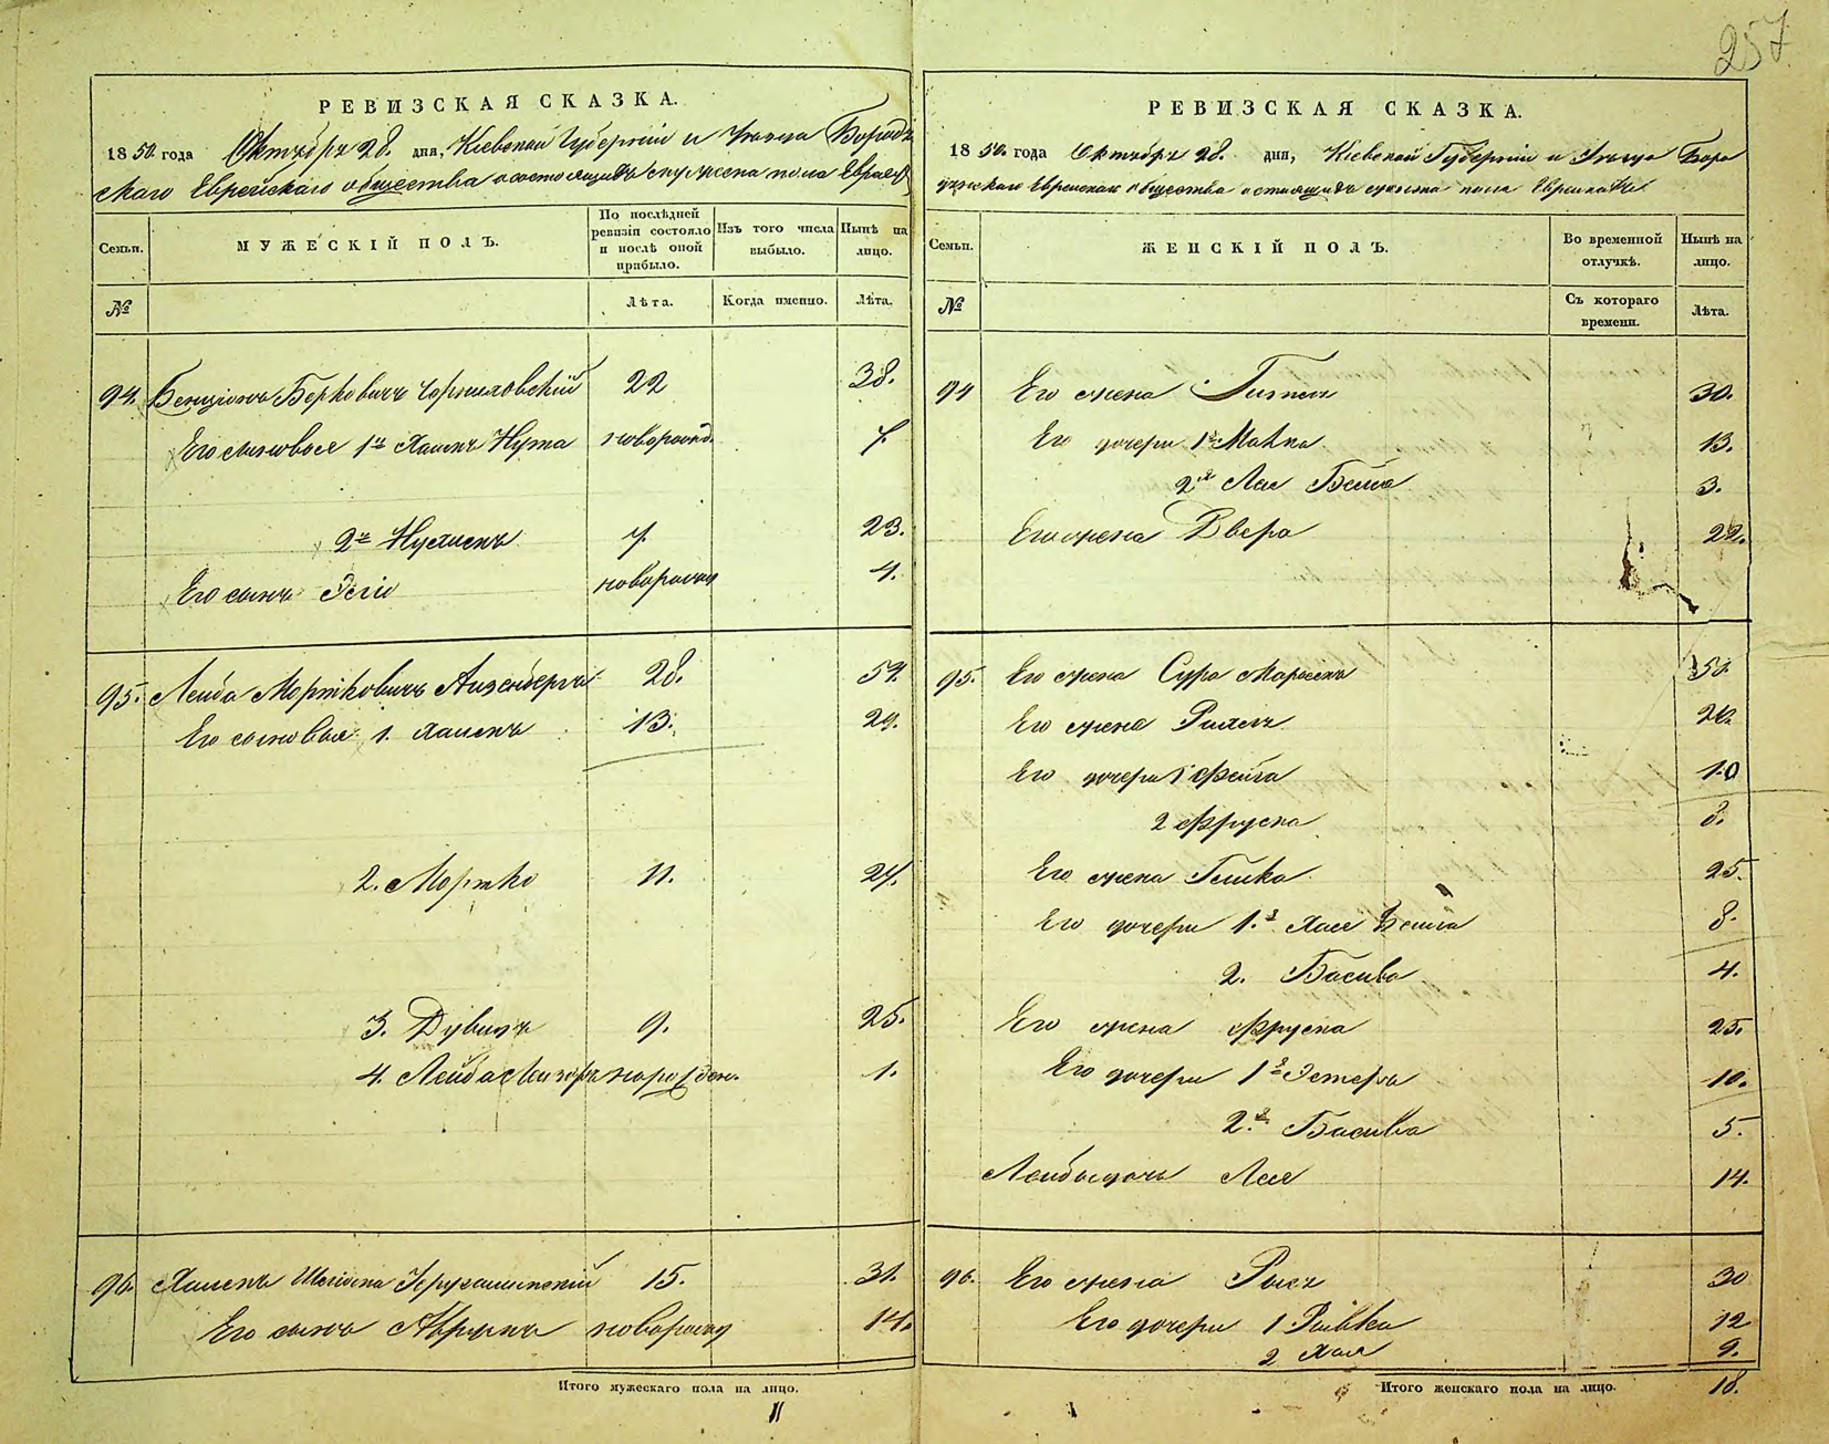 257
РЕВИЗСКАЯ СКАЗКА.
1850. года Октября 28. дня, Кіевской Губерніи и Уѣзда Бородян
скаго Еврейскаго общества о состоящихъ мужеска пола Евреевъ
Семьи.
МУЖЕСКІЙ ПОЛЪ.
По послѣдней ревизіи состояло и послѣ оной прибыло.
Изъ того числа выбыло.
Нынѣ на лицо.
№
Лѣта.
Когда именно.
Лѣта.
94. Бенціонъ Берковичъ Чорниховскій 22 38.
Его сыновья 1й Хаимъ Нута новорожд. 7.
2й Нухимъ 7. 23.
Его сынъ новорожд 4.
95. Лейба Мортковичъ Айзенбергъ 28. 54.
Его сыновья 1. Хаимъ 13. 29.
2. Мортко 11. 27.
3. Дувидъ 9. 25.
4. Лейба нарожден. 1.
96. Хаимъ Іерухалимскій 15. 31.
Его сынъ Аврумъ новорожд 14.
Итого мужескаго пола на лицо.
11
РЕВИЗСКАЯ СКАЗКА.
1850. года Октября 28. дня, Кіевской Губерніи и Уѣзда Боро
дянскаго Еврейскаго общества о стоящихъ женска пола Еврейкахъ
Семьи.
ЖЕНСКІЙ ПОЛЪ.
Во временной отлучкѣ.
Нынѣ на лицо.
№
Съ котораго времени.
Лѣта.
94 Его жена Гитель 30.
Его дочери 1я Малка 13.
2я Лая Бейла 3.
Его жена Двера 22.
95. Его жена Сура Марьемъ 50.
Его жена Рухель
Его дочери 1 Фейга 10
2 Фрума 8.
Его жена Гешка 25.
Его дочери 1.я Хая Бейла 8.
2. Басива 4.
Его жена Фрума 25.
Его дочери 1я Эстеръ 10.
2.я Басива 5.
Лейбы дочь Лея 14.
96. Его жена Рысь 30
Его дочери 1 Ривка 12
2 Хая 9.
Итого женскаго пола на лицо. 18.